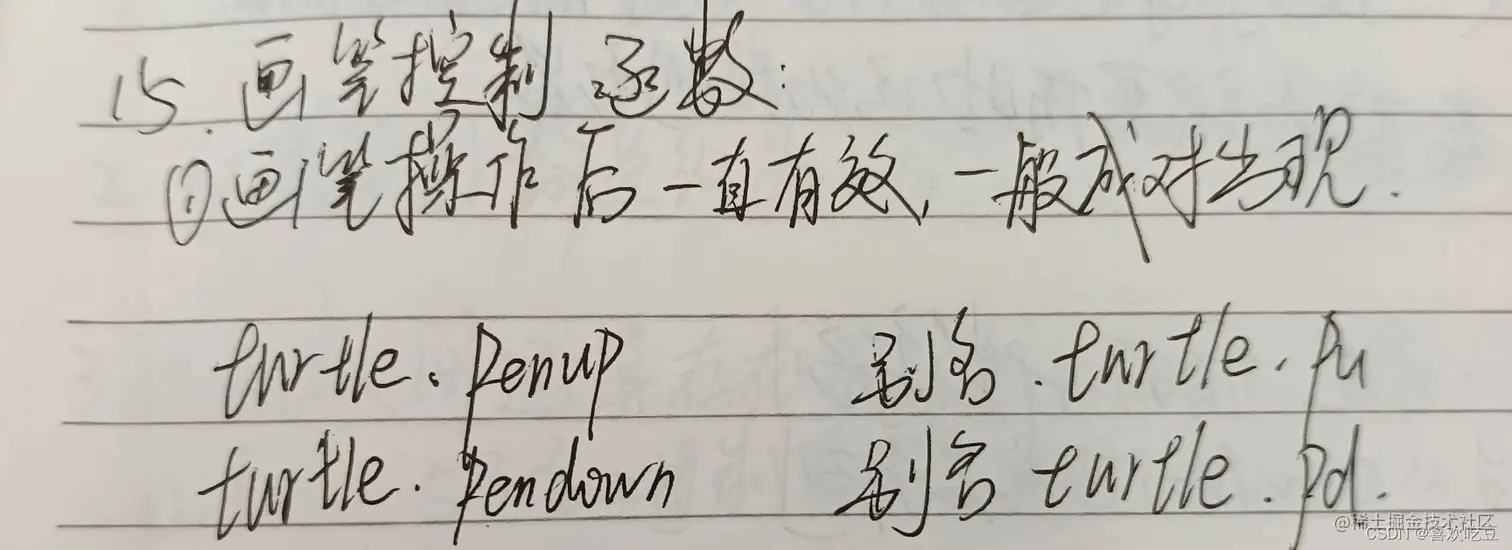 15. 画笔控制函数:
①画笔操作后一直有效,一般成对出现.
turtle.penup 别名.turtle.pu
turtle.pendown 别名 turtle.pd.
@稀土掘金技术社区
CSDN @喜欢吃豆